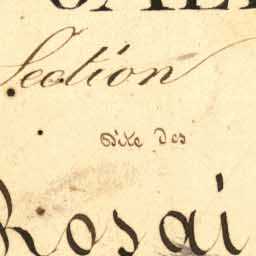 Section
dite des
Rosai